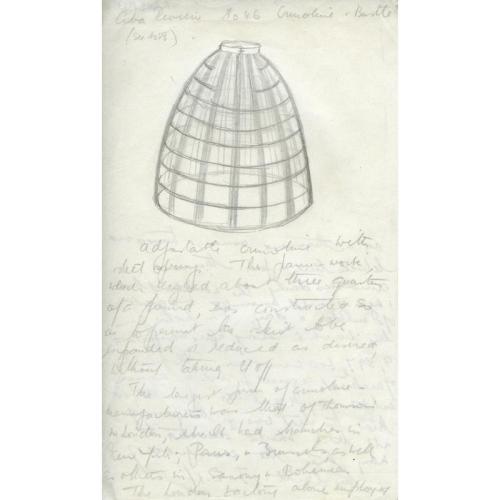 Ciba Review No 46 Crinoline & Bustle
adjustable crinoline with
steel springs. The frame-work,
which weighed about three quarters
of a pound, was constructed so
as to permit the skirt to be
expanded or reduced as desired
without taking it off
The largest firm of crinoline-
manufacturers was that of Thomson
in London, which had branches in
New York, Paris, & Brussels as well
as others in Saxony & Bohemia
The London factory alone employed